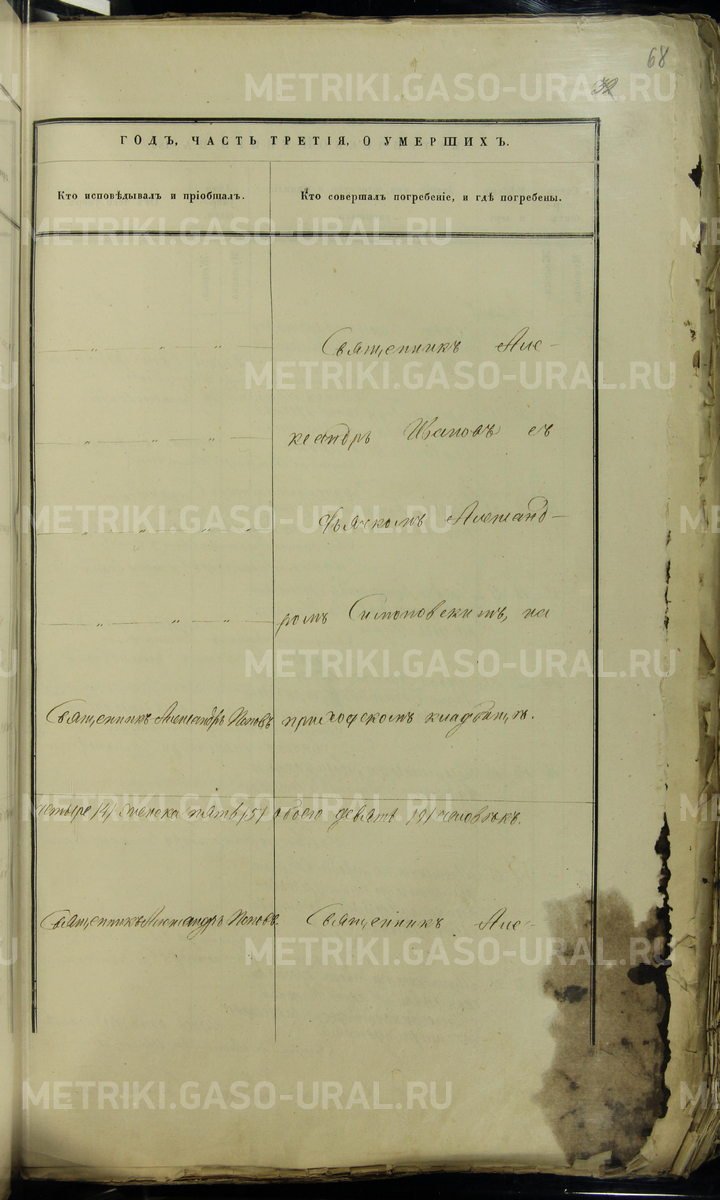 68
32
ГОДЪ, ЧАСТЬ ТРЕТІЯ, О УМЕРШИХЪ.
Кто исповѣдывалъ и пріобщалъ.
Кто совершалъ погребеніе, и гдѣ погребены.
Священникъ Але-
ксандръ Поповъ съ
Дьячкомъ Александ-
ромъ Симоновскимъ, на
Священникъ Александръ Поповъ
приходскомъ кладбищѣ.
четыре /4/ женска пять /5/ обоего девять /9/ человѣкъ.
Священникъ Александръ Поповъ.
Священникъ Але-
METRIKI.GASO-URAL.RU